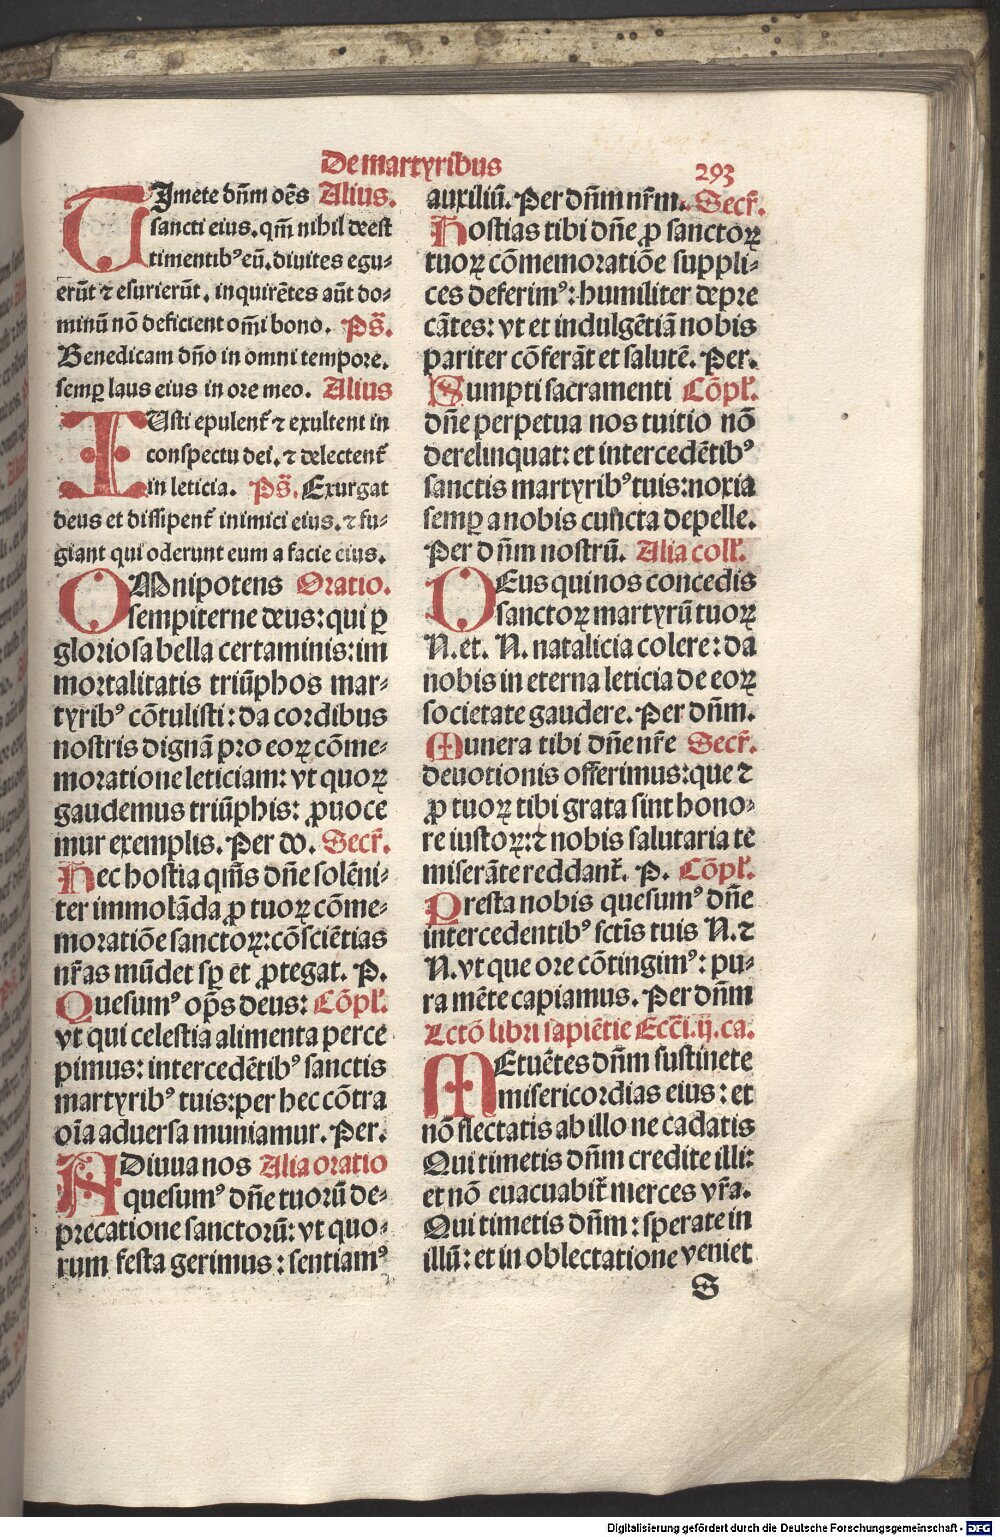 De martyribus
293
TImete dn̄m oēs Alius.
sancti eius. qm̄ nihil deest
timentibꝰ eū. diuites egu⸗
erūt ⁊ esurierūt. inquirētes aūt do⸗
minū nō deficient om̄i bono. Ps̄.
Benedicam dn̄o in omni tempore.
semꝑ laus eius in ore meo. Alius
IUsti epulent᷑ ⁊ exultent in
conspectu dei. ⁊ delectent᷑
in leticia. Ps̄. Exurgat
deus et dissipent᷑ inimici eius. ⁊ fu⸗
giant qui oderunt eum a facie eius.
OMnipotens Oratio.
sempiterne deus: qui ꝑ
gloriosa bella certaminis: im
mortalitatis triūphos mar⸗
tyribꝰ cōtulisti: da cordibus
nostris dignā pro eoꝝ cōme⸗
moratione leticiam: vt quoꝝ
gaudemus triūphis: ꝓuoce
mur exemplis. Per do. Secr᷑.
Hec hostia qm̄s dn̄e solēni⸗
ter immolāda ꝓ tuoꝝ cōme⸗
moratiōe sanctoꝝ: cōsciētias
nr̄as mūdet sꝑ et ꝓtegat. P.
Quesumꝰ op̄s deus: Cōpl᷑.
vt qui celestia alimenta perce
pimus: intercedētibꝰ sanctis
martyribꝰ tuis: per hec cōtra
oīa aduersa muniamur. Per.
ADiuua nos Alia oratio
quesumꝰ dn̄e tuorū de⸗
precatione sanctorū: vt quo⸗
rum festa gerimus: sentiamꝰ
auxiliū. Per dn̄m nr̄m. Secr᷑.
Hostias tibi dn̄e ꝓ sanctoꝝ
tuoꝝ cōmemoratiōe suppli⸗
ces deferimꝰ: humiliter depre
cātes: vt et indulgētiā nobis
pariter cōferāt et salutē. Per.
Sumpti sacramenti Cōpl᷑.
dn̄e perpetua nos tuitio nō
derelinquat: et intercedētibꝰ
sanctis martyribꝰ tuis: noxia
semꝑ a nobis cuncta depelle.
Per dn̄m nostrū. Alia coll᷑.
DEus qui nos concedis
sanctoꝝ martyrū tuoꝝ
N. et. N. natalicia colere: da
nobis in eterna leticia de eoꝝ
societate gaudere. Per dn̄m.
Munera tibi dn̄e nr̄e Secr᷑.
deuotionis offerimus: que ⁊
ꝓ tuoꝝ tibi grata sint hono⸗
re iustoꝝ: ⁊ nobis salutaria te
miserāte reddant᷑. P. Cōpl᷑.
Presta nobis quesumꝰ dn̄e
intercedentibꝰ sctīs tuis N. ⁊
N. vt que ore cōtingimꝰ: pu⸗
ra mēte capiamus. Per dn̄m
Lctō libri sapiētie Ecc̄i. ij. ca.
MEtuētes dn̄m sustinete
misericordias eius: et
nō flectatis ab illo ne cadatis
Qui timetis dn̄m credite illi:
et nō euacuabit᷑ merces vr̄a.
Qui timetis dn̄m: sperate in
illū: et in oblectatione veniet
S
Digitalisierung gefördert durch die Deutsche Forschungsgemeinschaft - DFG